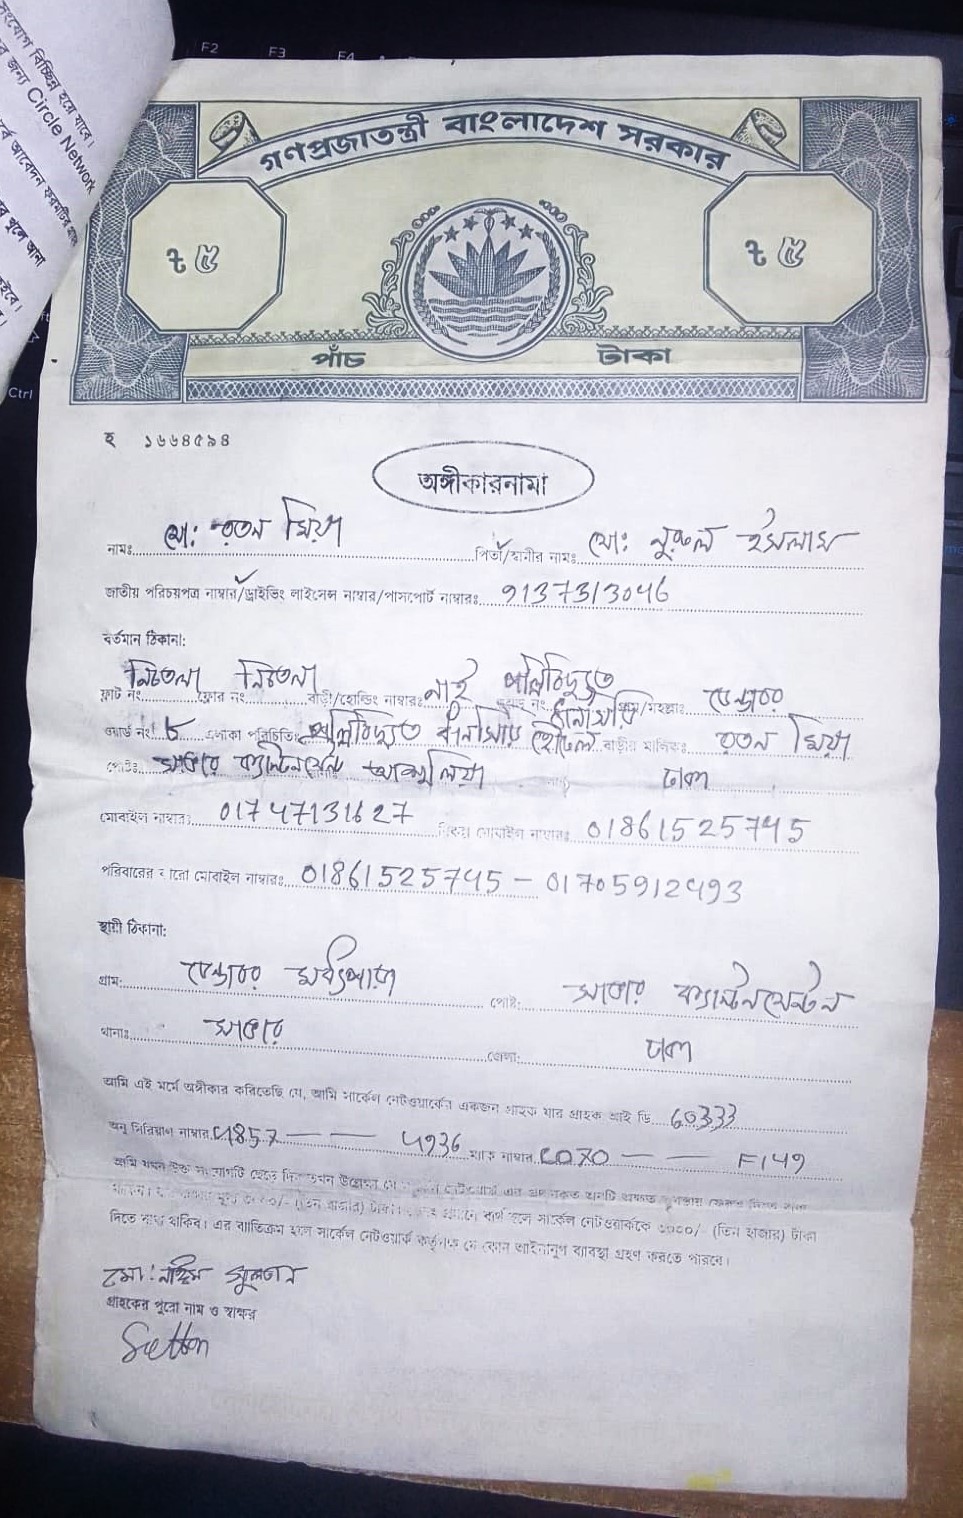 সংযোগ বিচ্ছিন্ন হয়ে যাবে।
জন্য Circle Network
আবেদন ফরমটির
খুলে আনা
F2 F3 F4
Ctrl
গণপ্রজাতন্ত্রী বাংলাদেশ সরকার
৳ ৫ ৳ ৫
পাঁচ টাকা
হ ১৬৬৪৫৯৪
অঙ্গীকারনামা
নামঃ মো: রতন মিয়া পিতা/স্বামীর নামঃ মো: নুরুল ইসলাম
জাতীয় পরিচয়পত্র নাম্বার/ড্রাইভিং লাইসেন্স নাম্বার/পাসপোর্ট নাম্বারঃ 9137313046
বর্তমান ঠিকানা:
ফ্লাট নং নিচতলা ফ্লোর নং নিচতলা বাড়ী/হোল্ডিং নাম্বারঃ নাই পল্লিবিদ্যুত /মহল্লাঃ
ওয়ার্ড নং: ৮ এলাকা পরিচিতি: পল্লিবিদ্যুত হোটেল বাড়ীর মালিকঃ রতন মিয়া
পোষ্টঃ সাভার ক্যান্টনমেন্ট আশুলিয়া ঢাকা
মোবাইল নাম্বারঃ 01747131627 বিকল্প মোবাইল নাম্বারঃ 01861525745
পরিবারের কারো মোবাইল নাম্বারঃ 01861525745 - 01705912493
স্থায়ী ঠিকানা:
গ্রাম: মধ্যপাড়া পোষ্ট: সাভার ক্যান্টনমেন্ট
থানাঃ সাভার জেলা: ঢাকা
আমি এই মর্মে অঙ্গীকার করিতেছি যে, আমি সার্কেল নেটওয়ার্কের একজন গ্রাহক যার গ্রাহক আই ডি 60333
অনু সিরিয়াল নাম্বার 4857 — — 4936 ম্যাক নাম্বার C070 — — F149
আমি যখন উক্ত সংযোগটি ছেড়ে দিব তখন উল্লেখ্য যে
(তিন হাজার) টাকা। ব্যর্থ হলে সার্কেল নেটওয়ার্ককে ৩০০০/- (তিন হাজার) টাকা
দিতে বাধ্য থাকিব। এর ব্যতিক্রম হলে সার্কেল নেটওয়ার্ক কর্তৃপক্ষ যে কোন আইনানুগ ব্যবস্থা গ্রহণ করতে পারবে।
মো: নাঈম সুলতান
গ্রাহকের পুরো নাম ও স্বাক্ষর